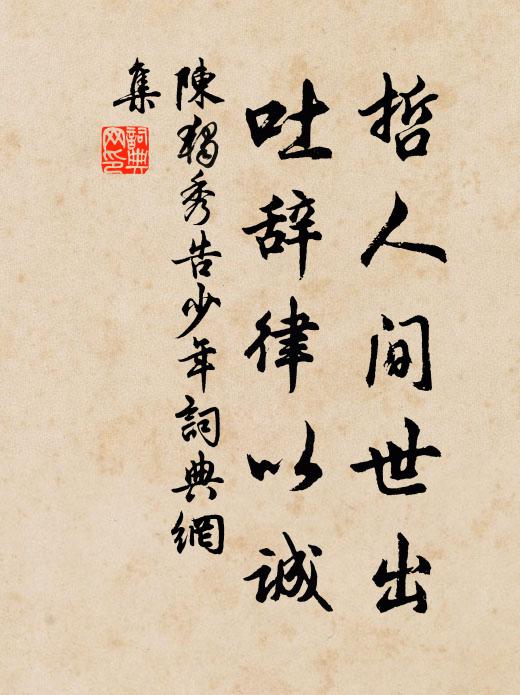 哲人间世出
吐辞律以诚
陳獨秀告少年詞典網
集
詞典
网印